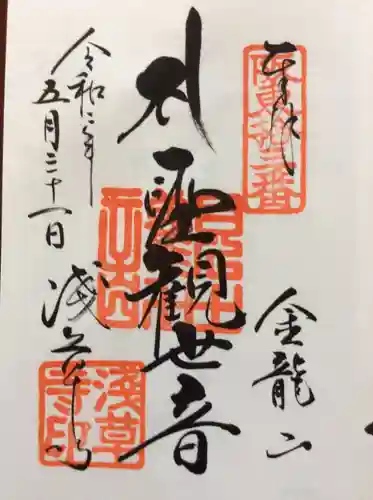 奉拝
坂東拾三番
金龍山
聖観世音
令和二年
五月二十一日
浅草寺
浅草寺印